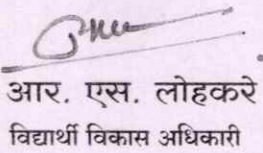 आर. एस. लोहकरे
विद्यार्थी विकास अधिकारी